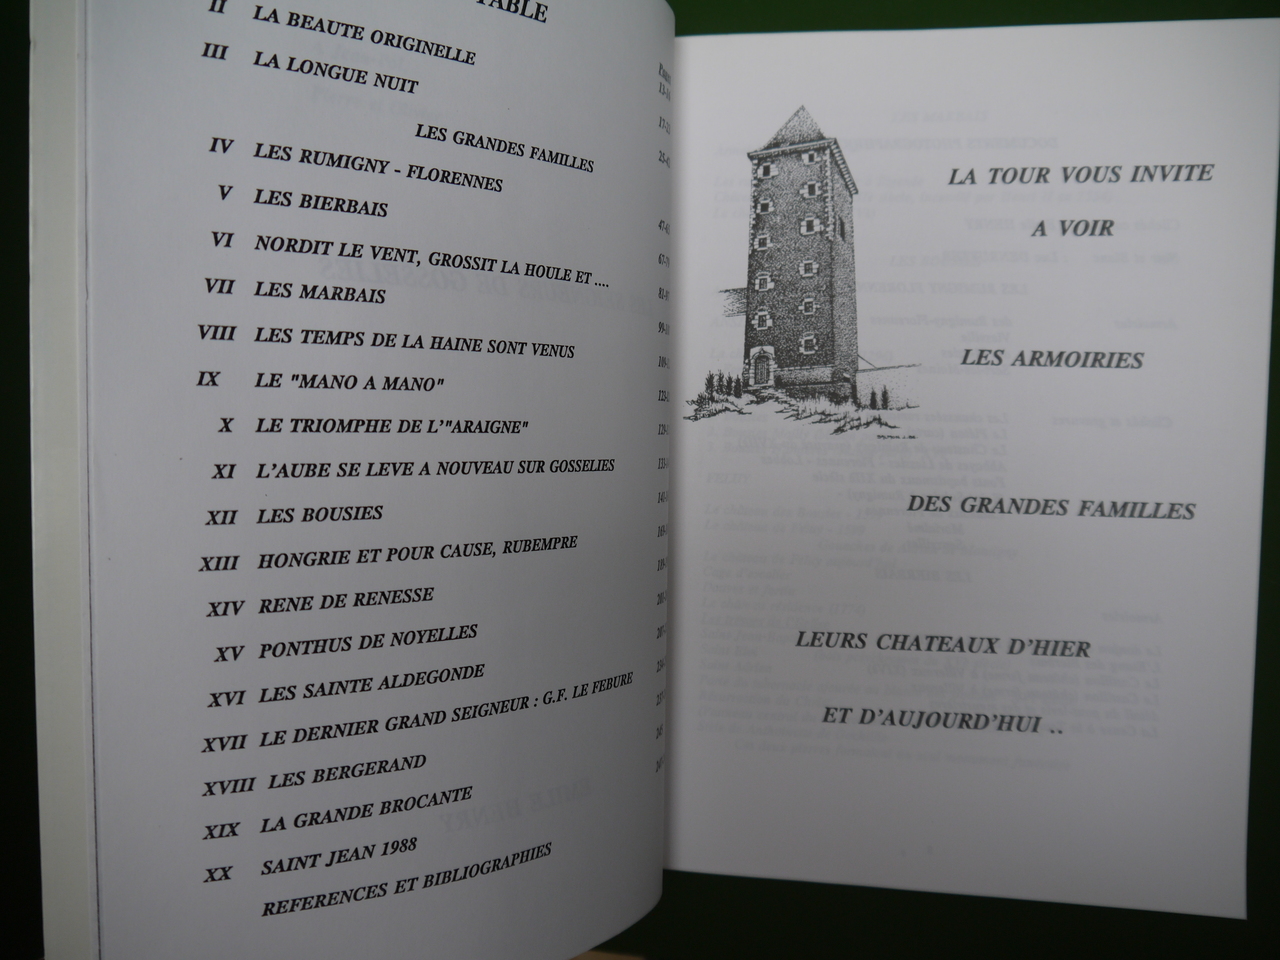 TABLE
II LA BEAUTE ORIGINELLE
III LA LONGUE NUIT
LES GRANDES FAMILLES
IV LES RUMIGNY - FLORENNES
V LES BIERBAIS
VI NORDIT LE VENT, GROSSIT LA HOULE ET ....
VII LES MARBAIS
VIII LES TEMPS DE LA HAINE SONT VENUS
IX LE "MANO A MANO"
X LE TRIOMPHE DE L'"ARAIGNE"
XI L'AUBE SE LEVE A NOUVEAU SUR GOSSELIES
XII LES BOUSIES
XIII HONGRIE ET POUR CAUSE, RUBEMPRE
XIV RENE DE RENESSE
XV PONTHUS DE NOYELLES
XVI LES SAINTE ALDEGONDE
XVII LE DERNIER GRAND SEIGNEUR : G.F. LE FEBURE
XVIII LES BERGERAND
XIX LA GRANDE BROCANTE
XX SAINT JEAN 1988
REFERENCES ET BIBLIOGRAPHIES
LA TOUR VOUS INVITE
A VOIR
LES ARMOIRIES
DES GRANDES FAMILLES
LEURS CHATEAUX D'HIER
ET D'AUJOURD'HUI ..